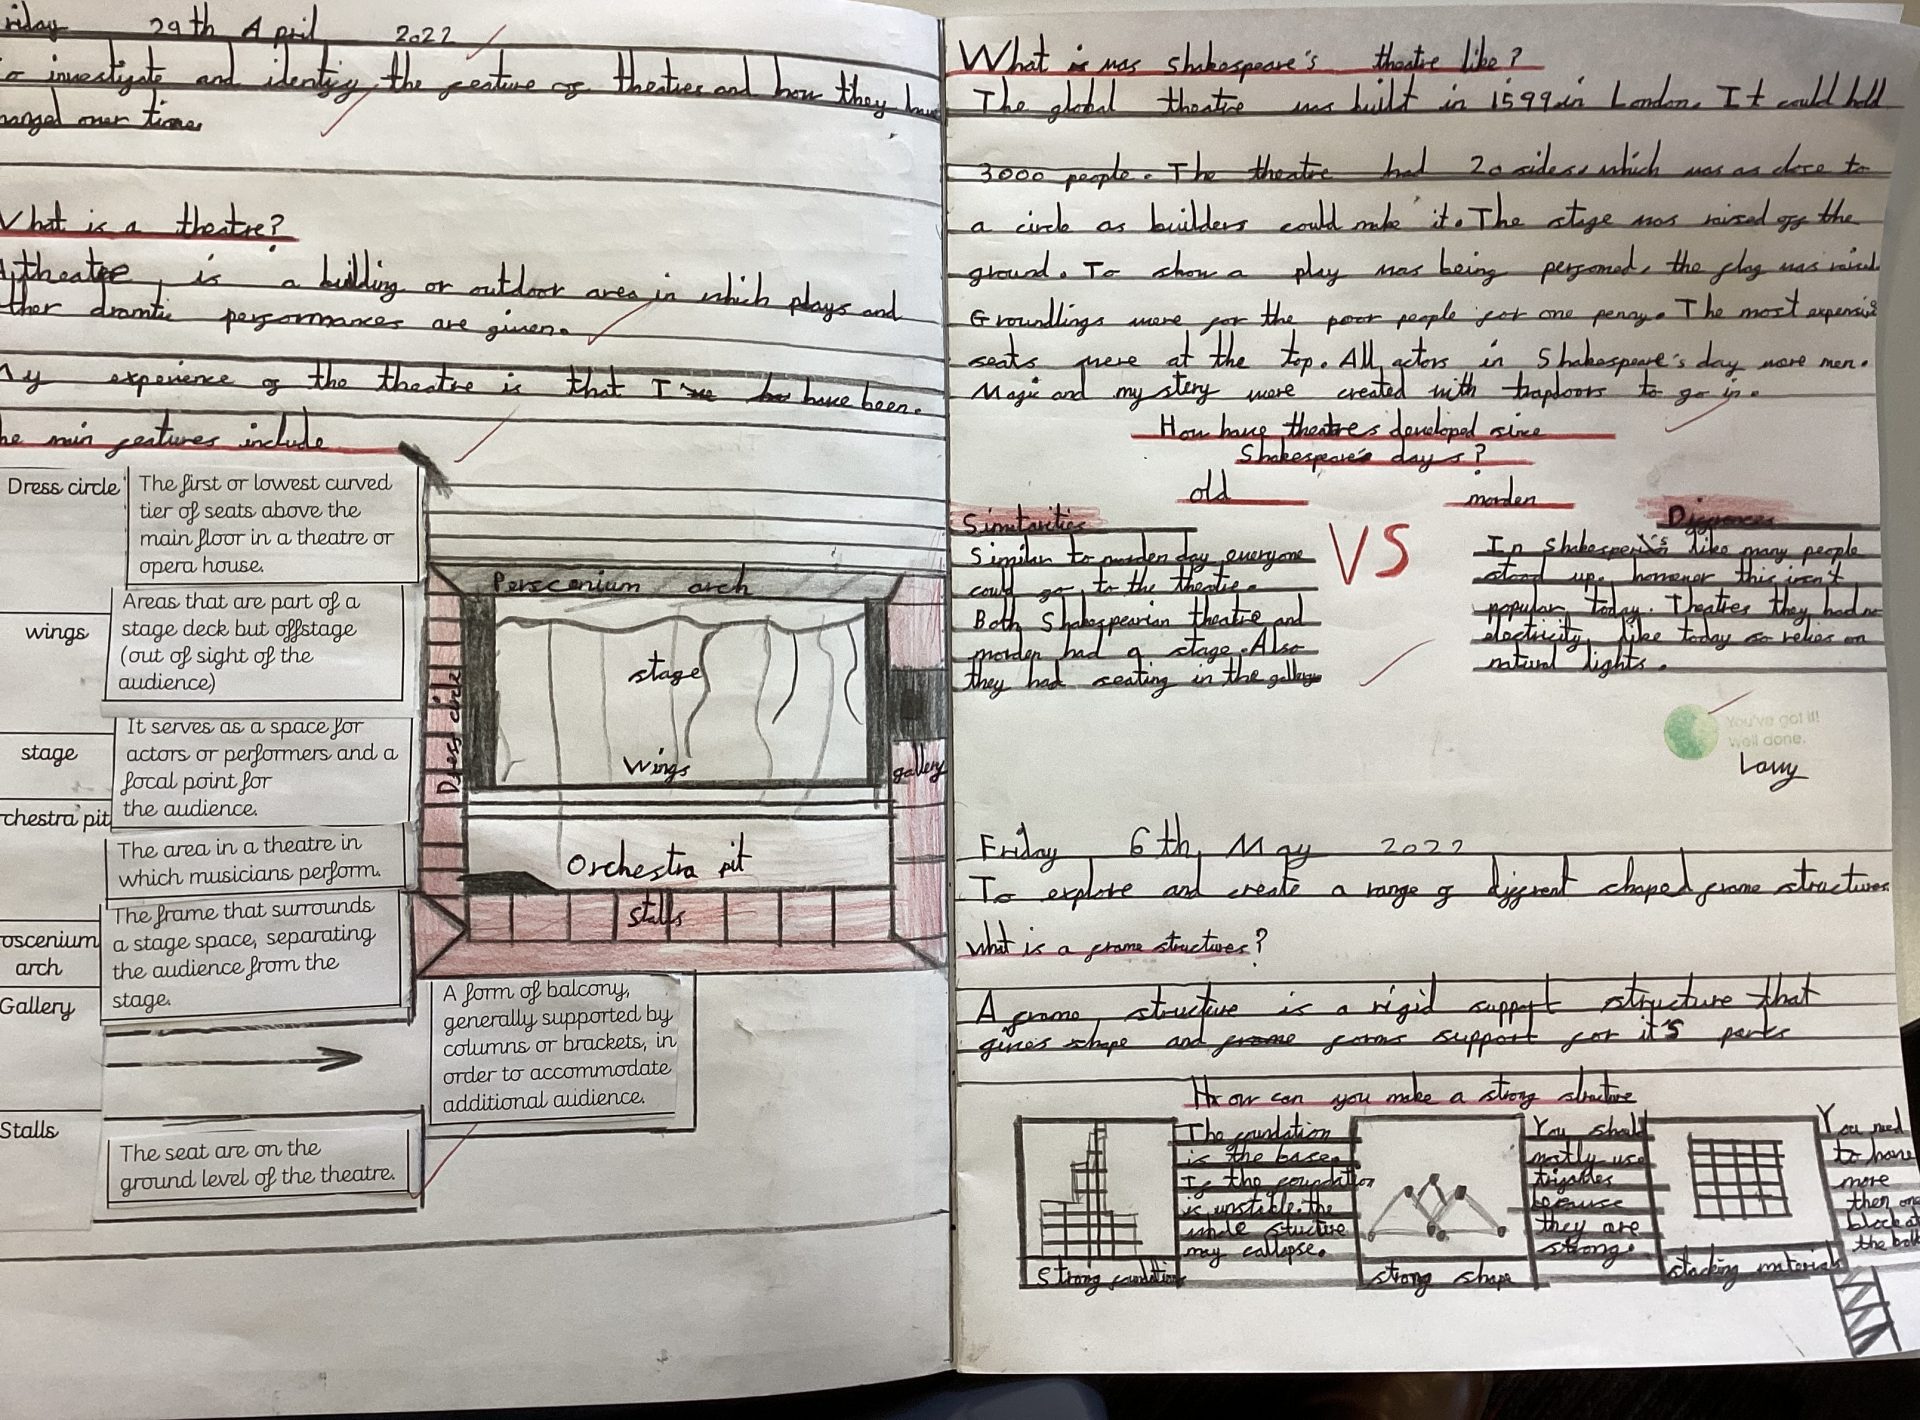 riday 29th April 2022
o investigate and identify the feature of theatres and how they have
hanged over time
What is a theatre?
A theatre, is a building or outdoor area in which plays and
ther dramtic performances are given.
My experience of the theatre is that I have been.
he main features include
Dress circle
The first or lowest curved
tier of seats above the
main floor in a theatre or
opera house.
wings
Areas that are part of a
stage deck but offstage
(out of sight of the
audience)
stage
It serves as a space for
actors or performers and a
focal point for
the audience.
rchestra pit
The area in a theatre in
which musicians perform.
oscenium
arch
The frame that surrounds
a stage space, separating
the audience from the
stage.
Gallery
A form of balcony,
generally supported by
columns or brackets, in
order to accommodate
additional audience.
Stalls
The seat are on the
ground level of the theatre.
Perscenium arch
stage
Dress circle
Wings
gallery
Orchestra pit
stalls
What is was Shakespeare's theatre like?
The global theatre was built in 1599 in London. It could hold
3000 people. The theatre had 20 sides, which was as close to
a circle as builders could make it. The stage was raised off the
ground. To show a play was being performed, the flag was raised
Groundlings were for the poor people for one penny. The most expensive
seats were at the top. All actors in Shakespeare's day were men.
Magic and mystery were created with trapdoors to go in.
How have theatres developed since
Shakespeare's days?
old
VS
morden
Similarities
Similar to morden day everyone
could go to the theatre.
Both Shakespearian theatre and
morden had a stage. Also
they had seating in the gallery
In Shakesper's like many people
stood up, however this isn't
popular today. Theatres they had no
electricity like today so relies on
natural lights.
You've got it!
Well done.
Friday 6th May 2022
To explore and create a range of diffrent shaped frame structures
What is a frame structures?
A frame structure is a rigid support structure that
gives shape and frame forms support for it's parts
How can you make a strong structure
The foundation
is the base.
If the foundation
is unstible the
whole stucture
may callapse.
strong foundation
You should
mostly use
because
they are
strong.
strong shape
You need
to have
more
then one
block at
the
stacking materials